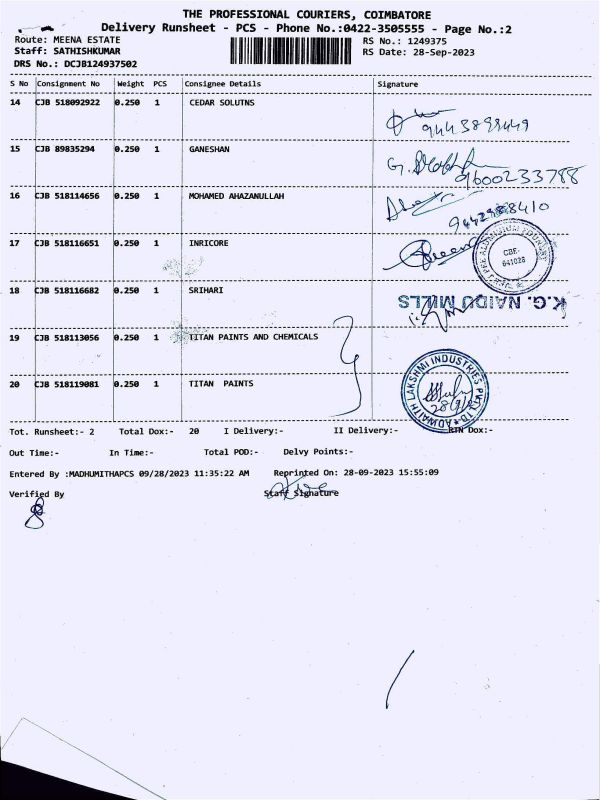 THE PROFESSIONAL COURIERS, COIMBATORE
Delivery Runsheet - PCS - Phone No.:0422-3505555 - Page No.:2
Route: MEENA ESTATE
RS No.: 1249375
Staff: SATHISHKUMAR
RS Date: 28-Sep-2023
DRS No.: DCJB124937502
S No Consignment No Weight PCS Consignee Details Signature
14 CJB 518092922 0.250 1 CEDAR SOLUTNS
15 CJB 89835294 0.250 1 GANESHAN
9600233788
16 CJB 518114656 0.250 1 MOHAMED AHAZANULLAH
17 CJB 518116651 0.250 1 INRICORE
CBE-
641028
18 CJB 518116682 0.250 1 SRIHARI
K.G. NAIDU MILLS
19 CJB 518113056 0.250 1 TITAN PAINTS AND CHEMICALS
20 CJB 518119081 0.250 1 TITAN PAINTS
ADWAITH LAKSHMI INDUSTRIES PVT LTD
Tot. Runsheet:- 2 Total Dox:- 20 I Delivery:- II Delivery:- RTN Dox:-
Out Time:- In Time:- Total POD:- Delvy Points:-
Entered By :MADHUMITHAPCS 09/28/2023 11:35:22 AM Reprinted On: 28-09-2023 15:55:09
Verified By Staff Signature